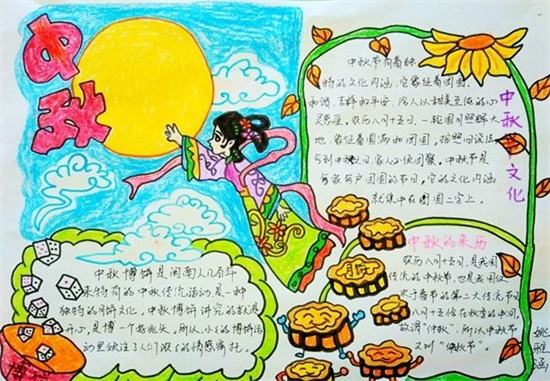 中秋
中秋节有着独
特的文化内涵，它象征着团圆、
和谐、吉祥和平安，给人以甜美的心
灵感应。农历八月十五日，一轮圆月照辉大
地，象征着圆满和团圆，按照旧说法
到中秋日，家人必须团聚，中秋节是
家有户团圆的节日，它的文化内涵
就集中在团圆二字上。
中秋文化
中秋的来历
农历八月十五日，是我国
传统的中秋节，也是我国仅
次于春节的第二大传统节日
八月十五恰在秋季的中间，
故谓“仲秋”，所以中秋节
又叫“仲秋节”。
中秋博饼是闽南人几百年
来特有的中秋传统活动，是一种
独特的月饼文化，中秋博饼讲究的就是
开心，是博一个好兆头，所以，小小的博饼活
动里倾注了人们浓浓的情感寄托。
博
姚雅涵